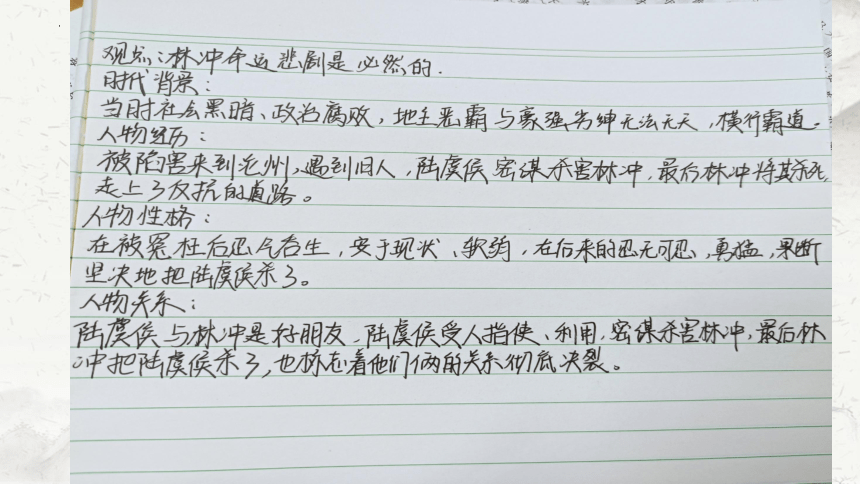 观点：林冲命运悲剧是必然的.
时代背景：
当时社会黑暗、政治腐败，地主恶霸与豪强劣绅无法无天，横行霸道.
人物经历：
被陷害来到沧州，遇到旧人，陆虞侯密谋杀害林冲，最后林冲将其杀死，
走上了反抗的道路。
人物性格：
在被冤枉后忍气吞生，安于现状、软弱，在后来的忍无可忍、勇猛，果断
坚决地把陆虞侯杀了。
人物关系：
陆虞侯与林冲是好朋友，陆虞侯受人指使、利用，密谋杀害林冲，最后林
冲把陆虞侯杀了，也标志着他们俩的关系彻底决裂。